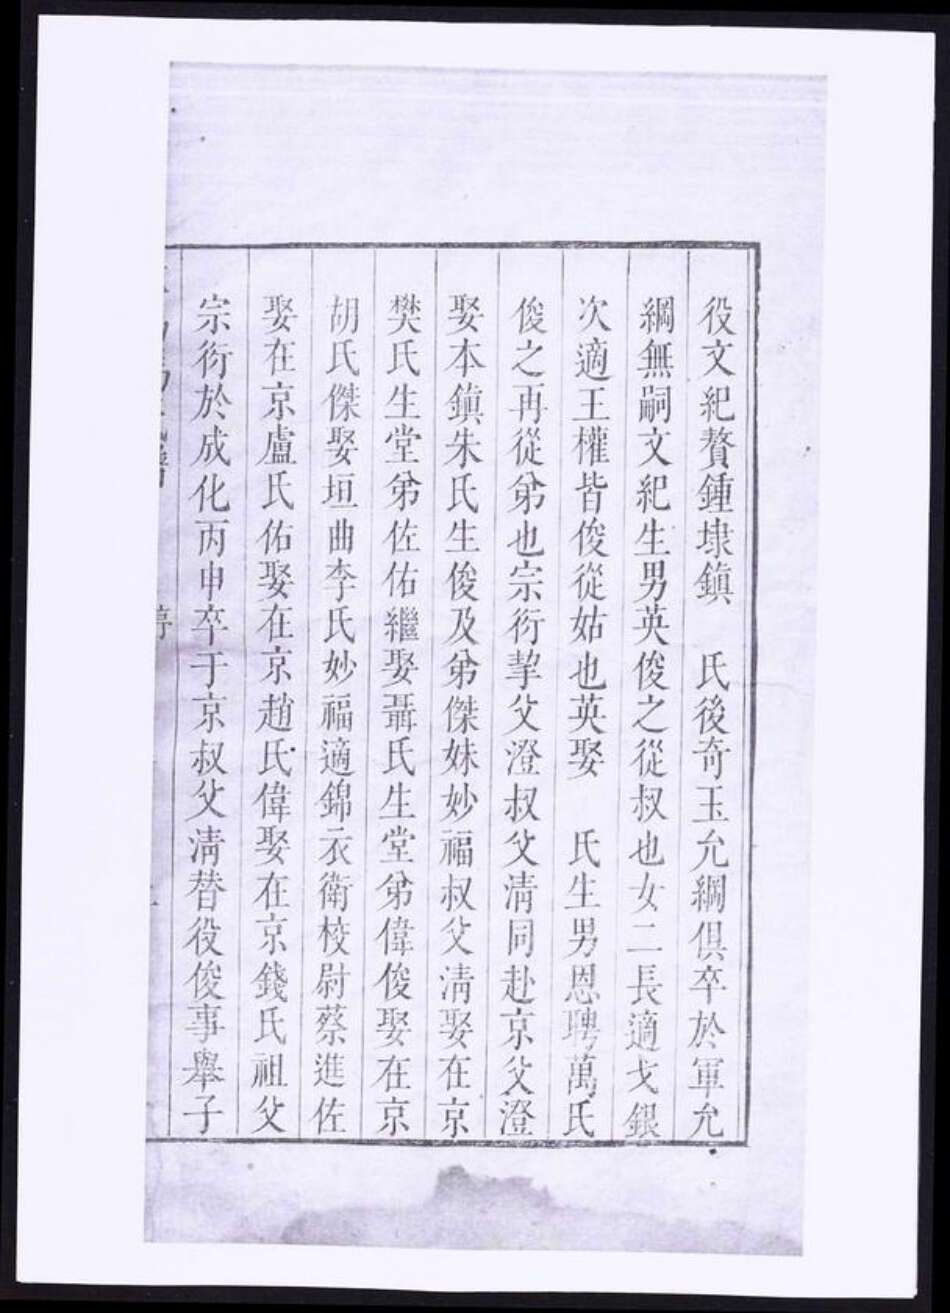 役文紀贅鍾埭鎮　氏後奇玉允綱俱卒於軍允
綱無嗣文紀生男英俊之從叔也女二長適戈銀
次適王權皆俊從姑也英娶　氏生男恩聘萬氏
俊之再從弟也宗衍挈父澄叔父清同赴京父澄
娶本鎮朱氏生俊及弟傑妹妙福叔父清娶在京
樊氏生堂弟佐佑繼娶聶氏生堂弟偉俊娶在京
胡氏傑娶垣曲李氏妙福適錦衣衛校尉蔡進佐
娶在京盧氏佑娶在京趙氏偉娶在京錢氏祖父
宗衍於成化丙申卒于京叔父清替役俊事舉子
序